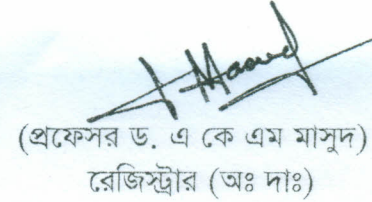 (প্রফেসর ড. এ কে এম মাসুদ)
রেজিস্ট্রার (অঃ দাঃ)